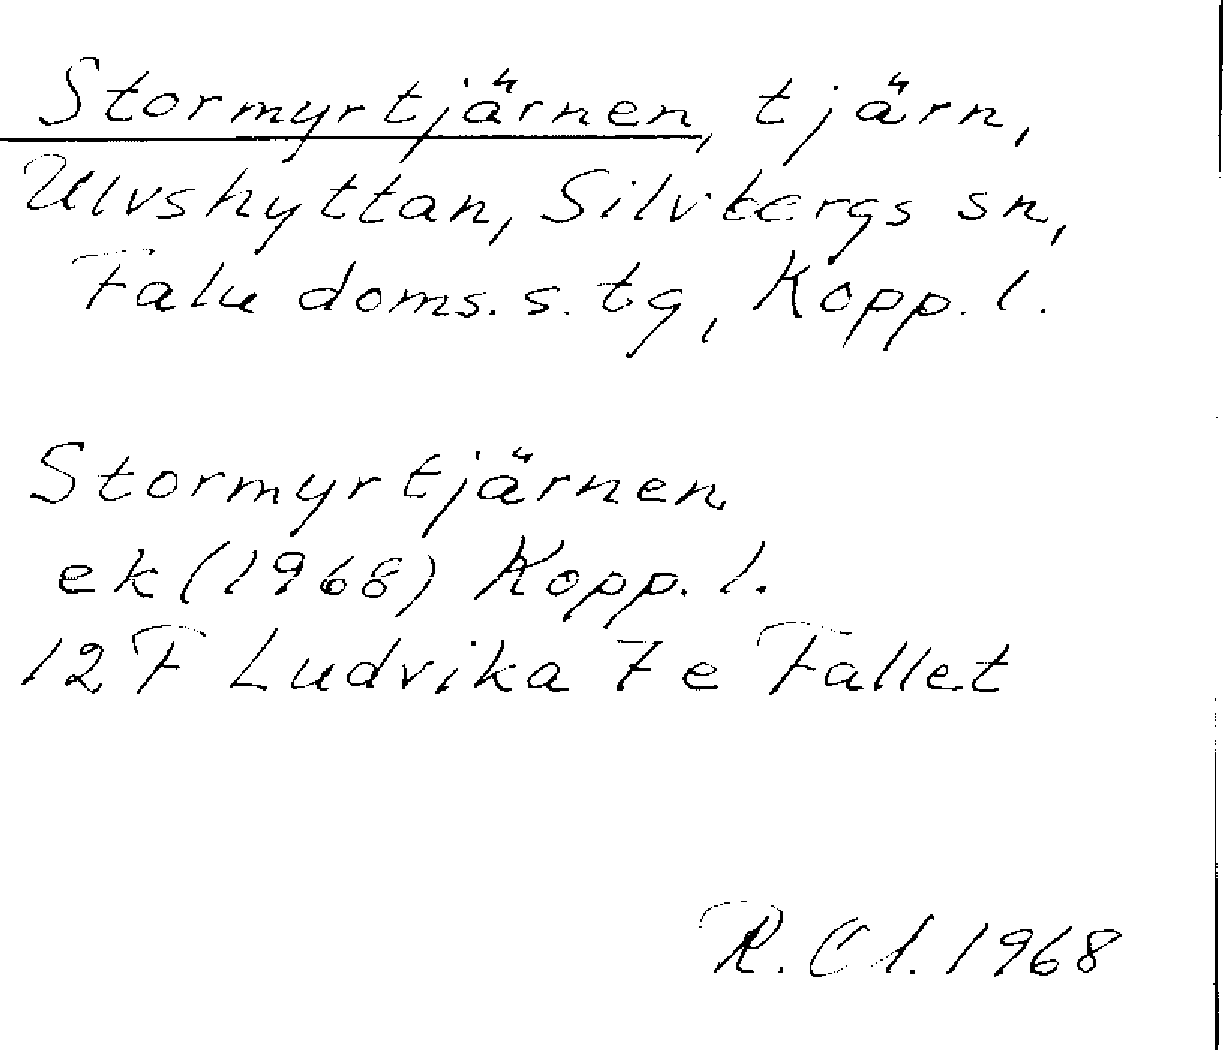 Stormyrtjärnen, tjärn,
Ulvshyttan, Silvbergs sn,
Falu doms. s. tg, Kopp. l.
Stormyrtjärnen
ek (1968) Kopp. l.
12 F Ludvika 7 e Fallet
R. Ol. 1968